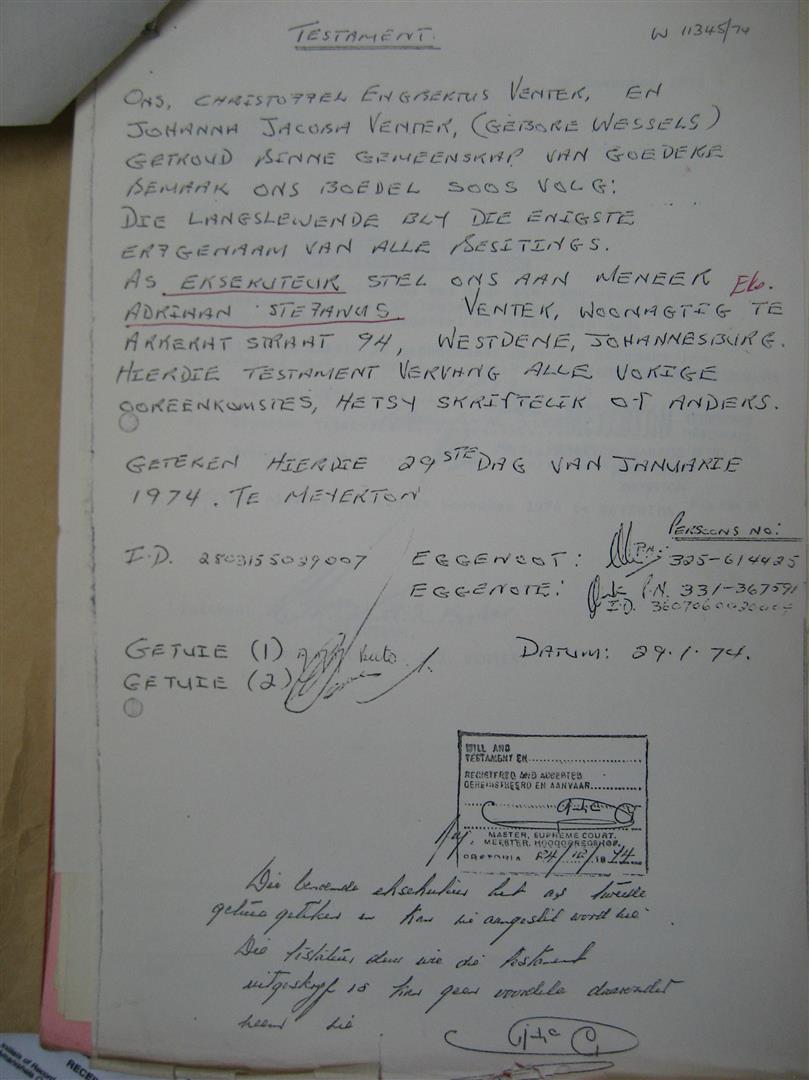 TESTAMENT.
W 11345/74
ONS, CHRISTOFFEL ENGBERTUS VENTER, EN
JOHANNA JACOBA VENTER, (GEBORE WESSELS)
GETROUD BINNE GEMEENSKAP VAN GOEDERE
BEMAAK ONS BOEDEL SOOS VOLG:
DIE LANGSLEWENDE BLY DIE ENIGSTE
ERFGENAAM VAN ALLE BESITINGS.
AS EKSEKUTEUR STEL ONS AAN MENEER Eks.
ADRIAAN STEFANUS VENTER, WOONAGTIG TE
ARKERAT STRAAT 94, WESTDENE, JOHANNESBURG.
HIERDIE TESTAMENT VERVANG ALLE VORIGE
OOREENKOMSTES, HETSY SKRIFTELIK OF ANDERS.
GETEKEN HIERDIE 29STE DAG VAN JANUARIE
1974. TE MEYERTON
PERSOONS NO:
I.D. 2803155039007 EGGENOOT: P.N. 325-614425
EGGENOTE: P.N. 331-367591
I.D.
GETUIE (1) DATUM: 29.1.74.
GETUIE (2)
WILL AND
TESTAMENT EN
REGISTERED AND ACCEPTED
GEREGISTREERD EN AANVAAR
MASTER, SUPREME COURT.
MEESTER, HOOGGEREGSHOF.
PRETORIA 24/12/1974
Die benoemde eksekuteur het as tweede
getuie geteken en kan nie aangestel word nie
Die testateur deur wie die testament
uitgeskryf is kan geen voordele daaronder
neem nie.
RECE